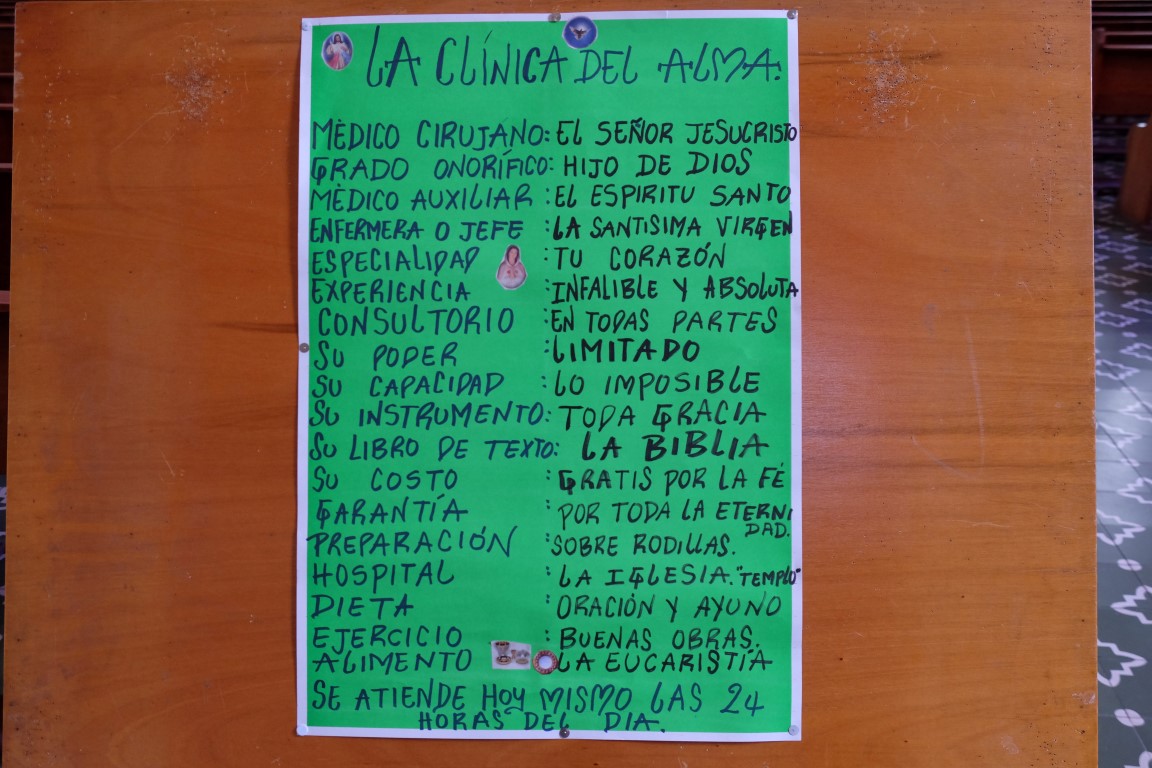 LA CLÍNICA DEL ALMA.
MÈDICO CIRUJANO: EL SEÑOR JESUCRISTO
GRADO ONORÍFICO: HIJO DE DIOS
MÈDICO AUXILIAR : EL ESPIRITU SANTO
ENFERMERA O JEFE : LA SANTISIMA VIRGEN
ESPECIALIDAD : TU CORAZÓN
EXPERIENCIA : INFALIBLE Y ABSOLUTA
CONSULTORIO : EN TODAS PARTES
SU PODER : LIMITADO
SU CAPACIDAD : LO IMPOSIBLE
SU INSTRUMENTO: TODA GRACIA
SU LIBRO DE TEXTO: LA BIBLIA
SU COSTO : GRATIS POR LA FÉ
GARANTÍA : POR TODA LA ETERNI
DAD.
PREPARACIÓN : SOBRE RODILLAS.
HOSPITAL : LA IGLESIA. "TEMPLO"
DIETA : ORACIÓN Y AYUNO
EJERCICIO : BUENAS OBRAS.
ALIMENTO : LA EUCARISTÍA
SE ATIENDE HOY MISMO LAS 24
HORAS DEL DIA.